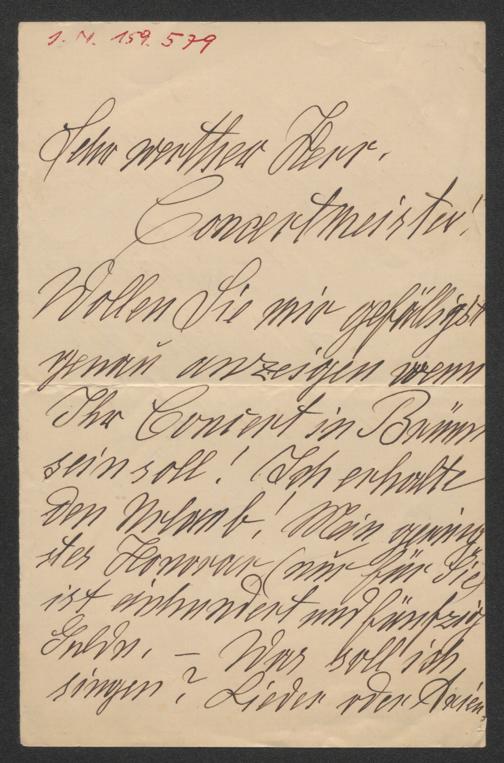 J. N. 159.579
Sehr werther Herr.
Concertmeister!
Wollen Sie mir gefälligst
genau anzeigen wenn
Ihr Concert in Brünn
sein soll! Ich erhalte
den Urlaub! Mein gering
stes Honorar (nur für Sie)
ist einhundert und fünfzig
Guldn. – Was soll ich
singen? Lieder oder Arien,